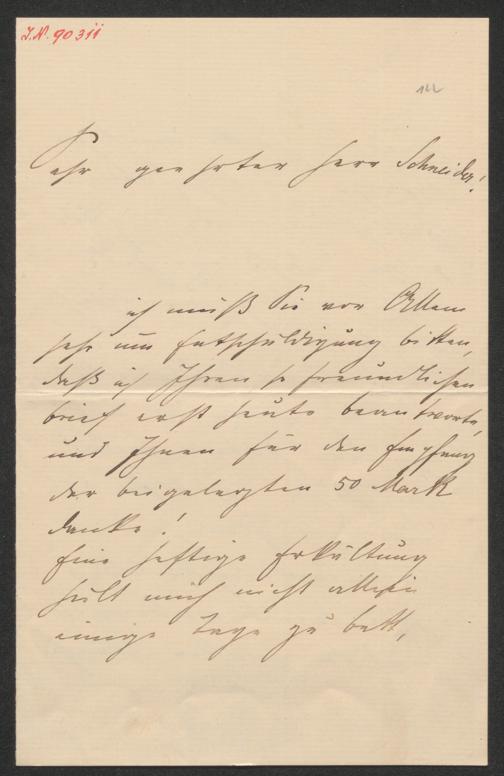 J.N. 90311
142
Sehr geehrter Herr Schneider!
ich muß Sie vor Allem
sehr um Entschuldigung bitten,
daß ich Ihren so freundlichen
brief erst heute beantworte,
und Ihnen für den Empfang
der beigelegten 50 Mark
danke!
Eine heftige Erkältung
hielt mich nicht allein
einige Tage zu bett,